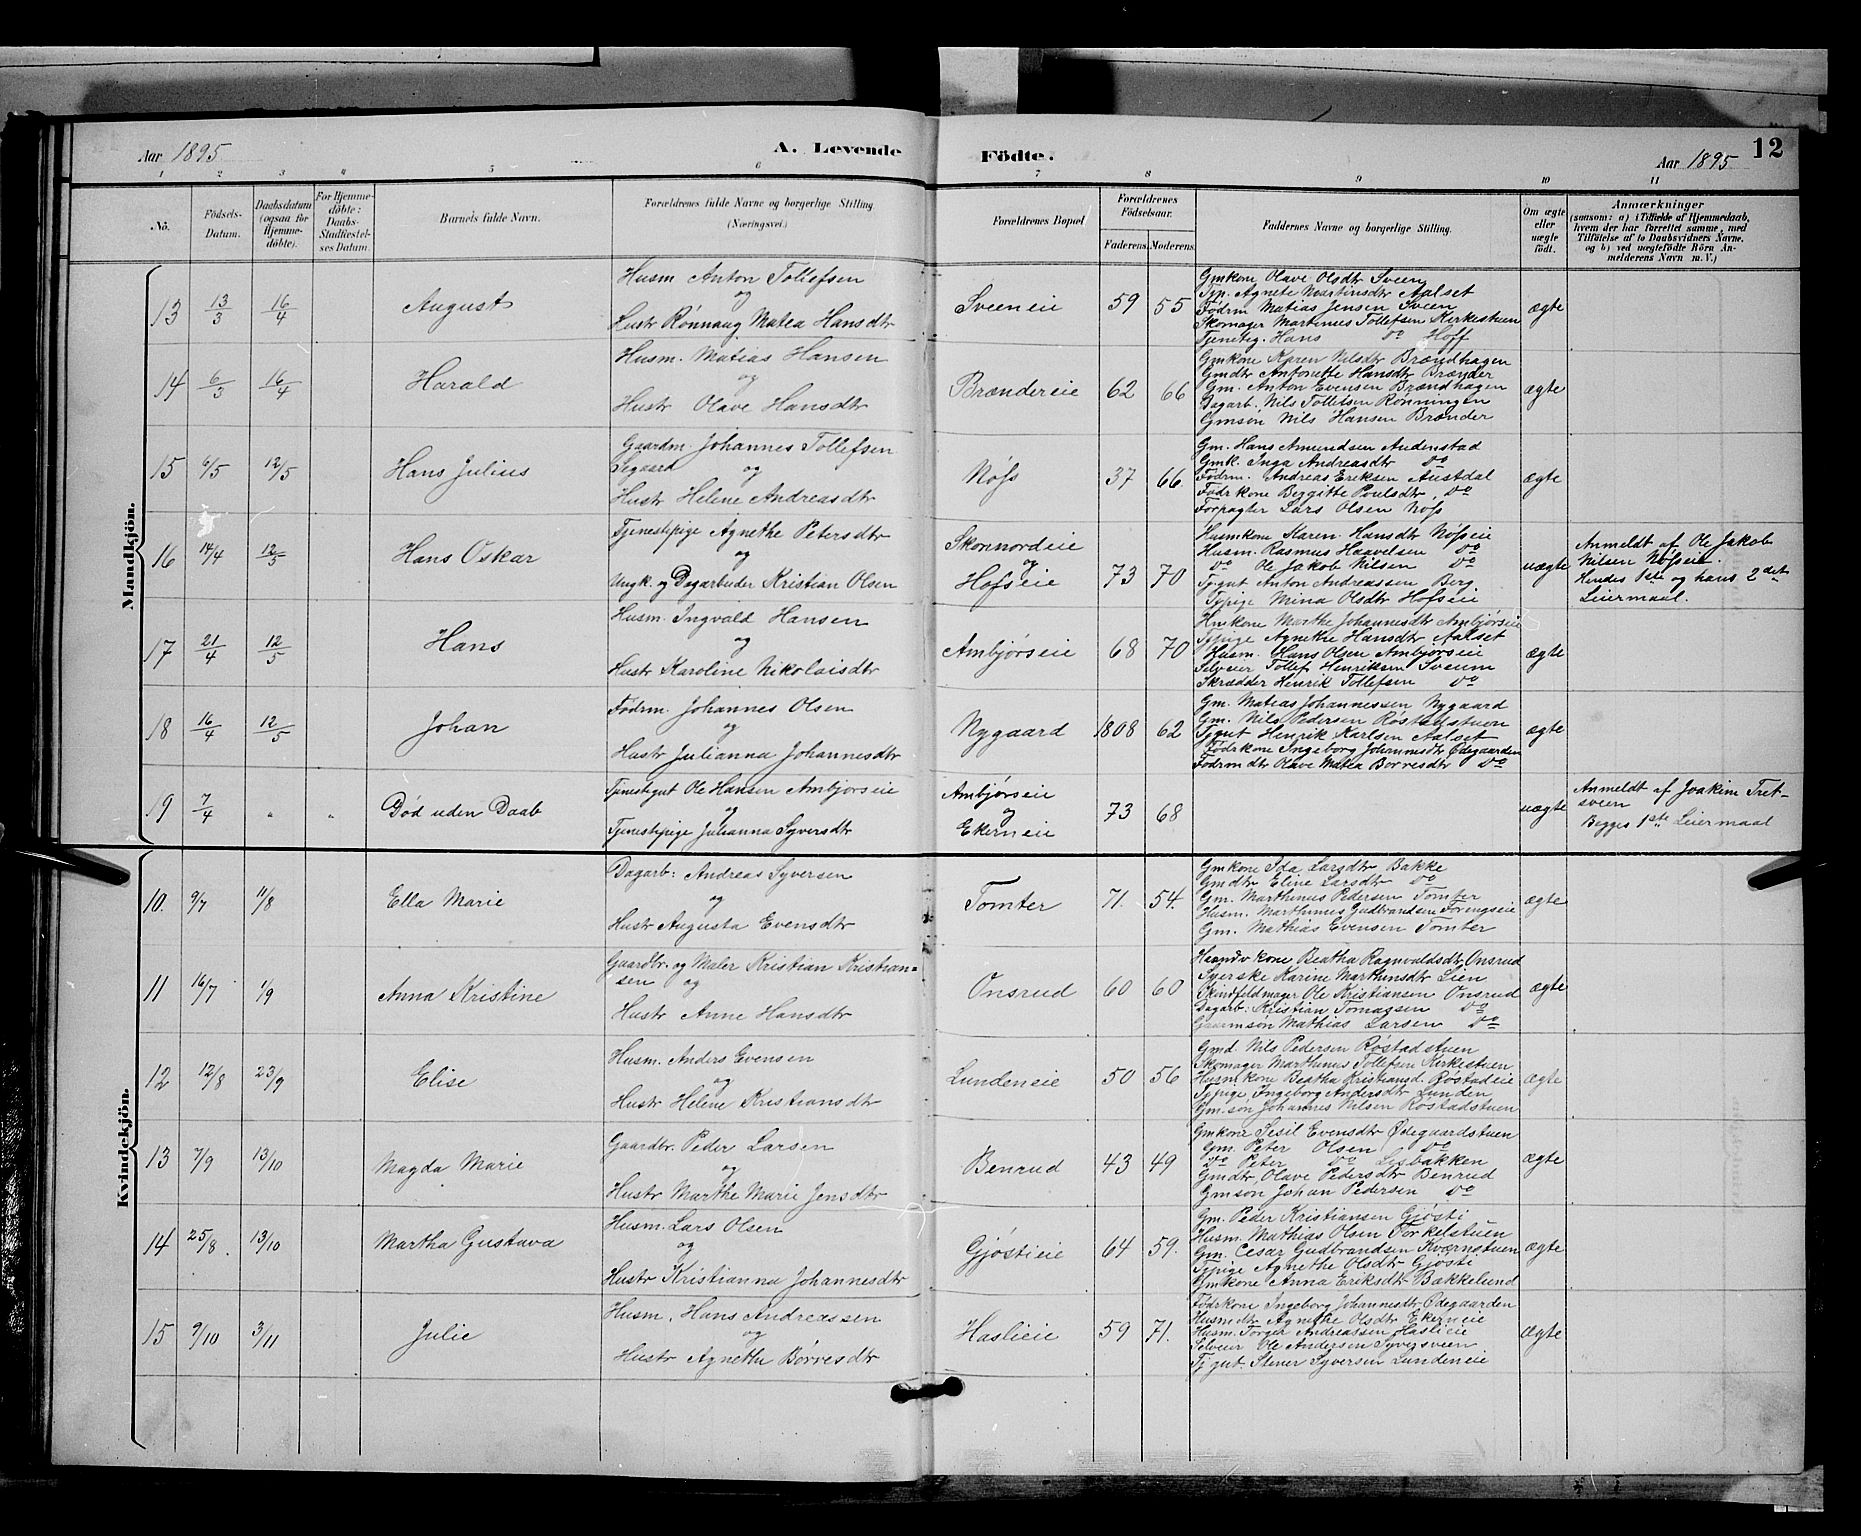 Aar 1895 A. Levende Födte. Aar 1895 12
1 2 3 4 5 6 7 8 9 10 11
No. Födsels-Datum. Daabsdatum (ogsaa for Hjemmedöbte). For Hjemmedöbte: Daabs-Stadfæstelses Datum. Barnets fulde Navn. Forældrenes fulde Navne og borgerlige Stilling (Næringsvei.) Forældrenes Bopæl Forældrenes Födselsaar. Faderens. Moderens. Faddernes Navne og borgerlige Stilling. Om ægte eller uægte födt. Anmærkninger (saasom: a) i Tilfælde af Hjemmedaab, hvem der har forrettet samme, med Tilföielse af to Daabsvidners Navne, og b) ved uægtefödte Börn Anmelderens Navn m. V.)
Mandkjön.
13 13/3 16/4 August
Husm Anton Tollefsen
og
Hustr Rønnaug Matea Hansdtr
Sveeneie 59 55
Gmkone Olave Olsdtr Sveen
Tjp. Agnete Martinsdtr Aalset
Födrm Matias Jensen Sveen
Skomager Martinus Tollefsen Kirkestuen
Tjenetg. Hans do Hoff
ægte
14 6/3 16/4 Harald
Husm. Matias Hansen
og
Hustr Olave Hansdtr
Brændereie 62 66
Gmkone Karen Nilsdtr Brændhagen
Gmdtr Antonette Hansdtr Brænder
Gm. Anton Evensen Brændhagen
Dagarb. Nils Tollefsen Rønningen
Gmsøn Nils Hansen Brænder
ægte
15 6/5 12/5 Hans Julius
Gaardm. Johannes Tollefsen
Segaard og
Hustr Helene Andreasdtr
Nøss 37 66
Gm. Hans Amundsen Audenstad
Gmk. Inga Andreasdtr do
Födrm. Andreas Eriksen Austdal
Födrkone Beggitte Poulsdtr. do
Forpagter Lars Olsen Nøss
ægte
16 14/4 12/5 Hans Oskar
Tjenestepige Agnethe Petersdtr
og
Ungk. og Dagarbeider Kristian Olsen
Skonnordeie
og
Hofseie 73 70
Husmkone Karen Hansdtr Nøsseie
Husm. Rasmus Haavelsen do
do Ole Jakob Nilsen do
Tjgut Anton Andreassen Berg
Tjpige Mina Olsdtr Hofseie
uægte
Anmeldt af Ole Jakob
Nilsen Nøsseie.
Hendes 1ste og hans 2det
Leiermaal.
17 21/4 12/5 Hans
Husm. Ingvald Hansen
og
Hustr Karoline Nikolaisdtr
Ambjørseie 68 70
Hmkone Marthe Johannesdtr Ambjørseie
Tjpige Agnethe Hansdtr Aalset
Husm. Hans Olsen Ambjørseie
Selveier Tollef Henriksen Sveum
Skrædder Henrik Tollefsen do
ægte
18 16/4 12/5 Johan
Födrm. Johannes Olsen
og
Hustr Julianna Johannesdtr
Nygaard 1808 62
Gm. Matias Johannessen Nygaard
Gm. Nils Pedersen Røstadstuen
Tjgut Henrik Karlsen Aalset
Födrkone Ingeborg Johannesdtr Ødegaarden
Födrmdtr Olave Matea Børresdtr do
ægte
19 7/4 " " Död uden Daab
Tjenestegut Ole Hansen Ambjørseie
og
Tjenestepige Julianna Syversdtr
Ambjørseie
og
Ekerneie 73 68
uægte
Anmeldt af Joakim Tret-
sveen
Begges 1ste Leiermaal
Kvindekjön.
10. 9/7 11/8 Ella Marie
Dagarb: Andreas Syversen
og
Hustr Augusta Evensdtr
Tomter 71. 54.
Gmkone Ida Larsdtr Bakke
Gmdtr Eline Larsdtr do
Gm. Marthinus Pedersen Tomter
Husm. Marthinus Gudbrandsen Forengseie
Gm. Mathias Evensen Tomter
ægte
11 16/7 1/9 Anna Kristine
Gaardbr. og Maler Kristian Kristian=
sen og
Hustr Anne Hansdtr
Onsrud 60 60
Haandv kone Beatha Ragnvaldsdtr Onsrud
Syerske Karine Marthinsdtr Lien
Skindfeldmager Ole Kristiansen Onsrud
Dagarb: Kristian Tomassen do
Gaarmsøn Mathias Larsen do
ægte
12 12/8 23/9 Elise
Husm. Anders Evensen
og
Hustr Helene Kristiansdtr
Lundeneie 50 56
Gmd. Nils Pedersen Røstadstuen
Skomager Marthinus Tollefsen Kirkestuen
Husmkone Beatha Kristiansd. Røstadeie
Tjpige Ingeborg Andersdtr Lunden
Gm.søn Johannes Nilsen Røstadstuen
ægte
13 7/9 13/10 Magda Marie
Gaardbr. Peder Larsen
og
Hustr Marthe Marie Jensdtr
Benrud 43 49
Gmkone Sesil Evensdtr Ødegaardstuen
Gm. Peter Olsen do
do Peter do Lisbakken
Gmdtr, Olave Pedersdtr Benrud
Gmson Johan Pedersen do
ægte
14 25/8. 13/10 Martha Gustava
Husm. Lars Olsen
og
Hustr Kristianna Johannesdtr
Gjøstieie 64 59.
Gm. Peder Kristiansen Gjøsti
Husm. Mathias Olsen Torkelstuen
Gm. Cesar Gudbrandsen Kværnstuen
Tjpige Agnethe Olsdtr Gjøsti
Gmkone Anna Eriksdtr Bækkelund
ægte
15 9/10 3/11 Julie
Husm. Hans Andreassen
og
Hustr Agnethe Børresdtr
Haslieie 59 71.
Födrkone Ingeborg Johannesdtr Ødegaarden
Husmdtr Agnethe Olsdtr Ekerneie
Husm. Torger Andreassen Haslieie
Selveier Ole Andersen Syversveen
Tj gut. Stener Syversen Lundeneie
ægte